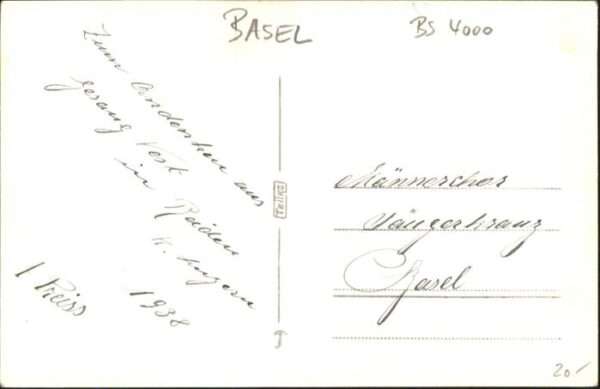 BASEL
BS 4000
Zum Andenken aus
gesang Fest
in Reiden
K. Luzern
1938
1 Preiss
TellKo
Männerchor
Sängerkranz
Basel
20.-